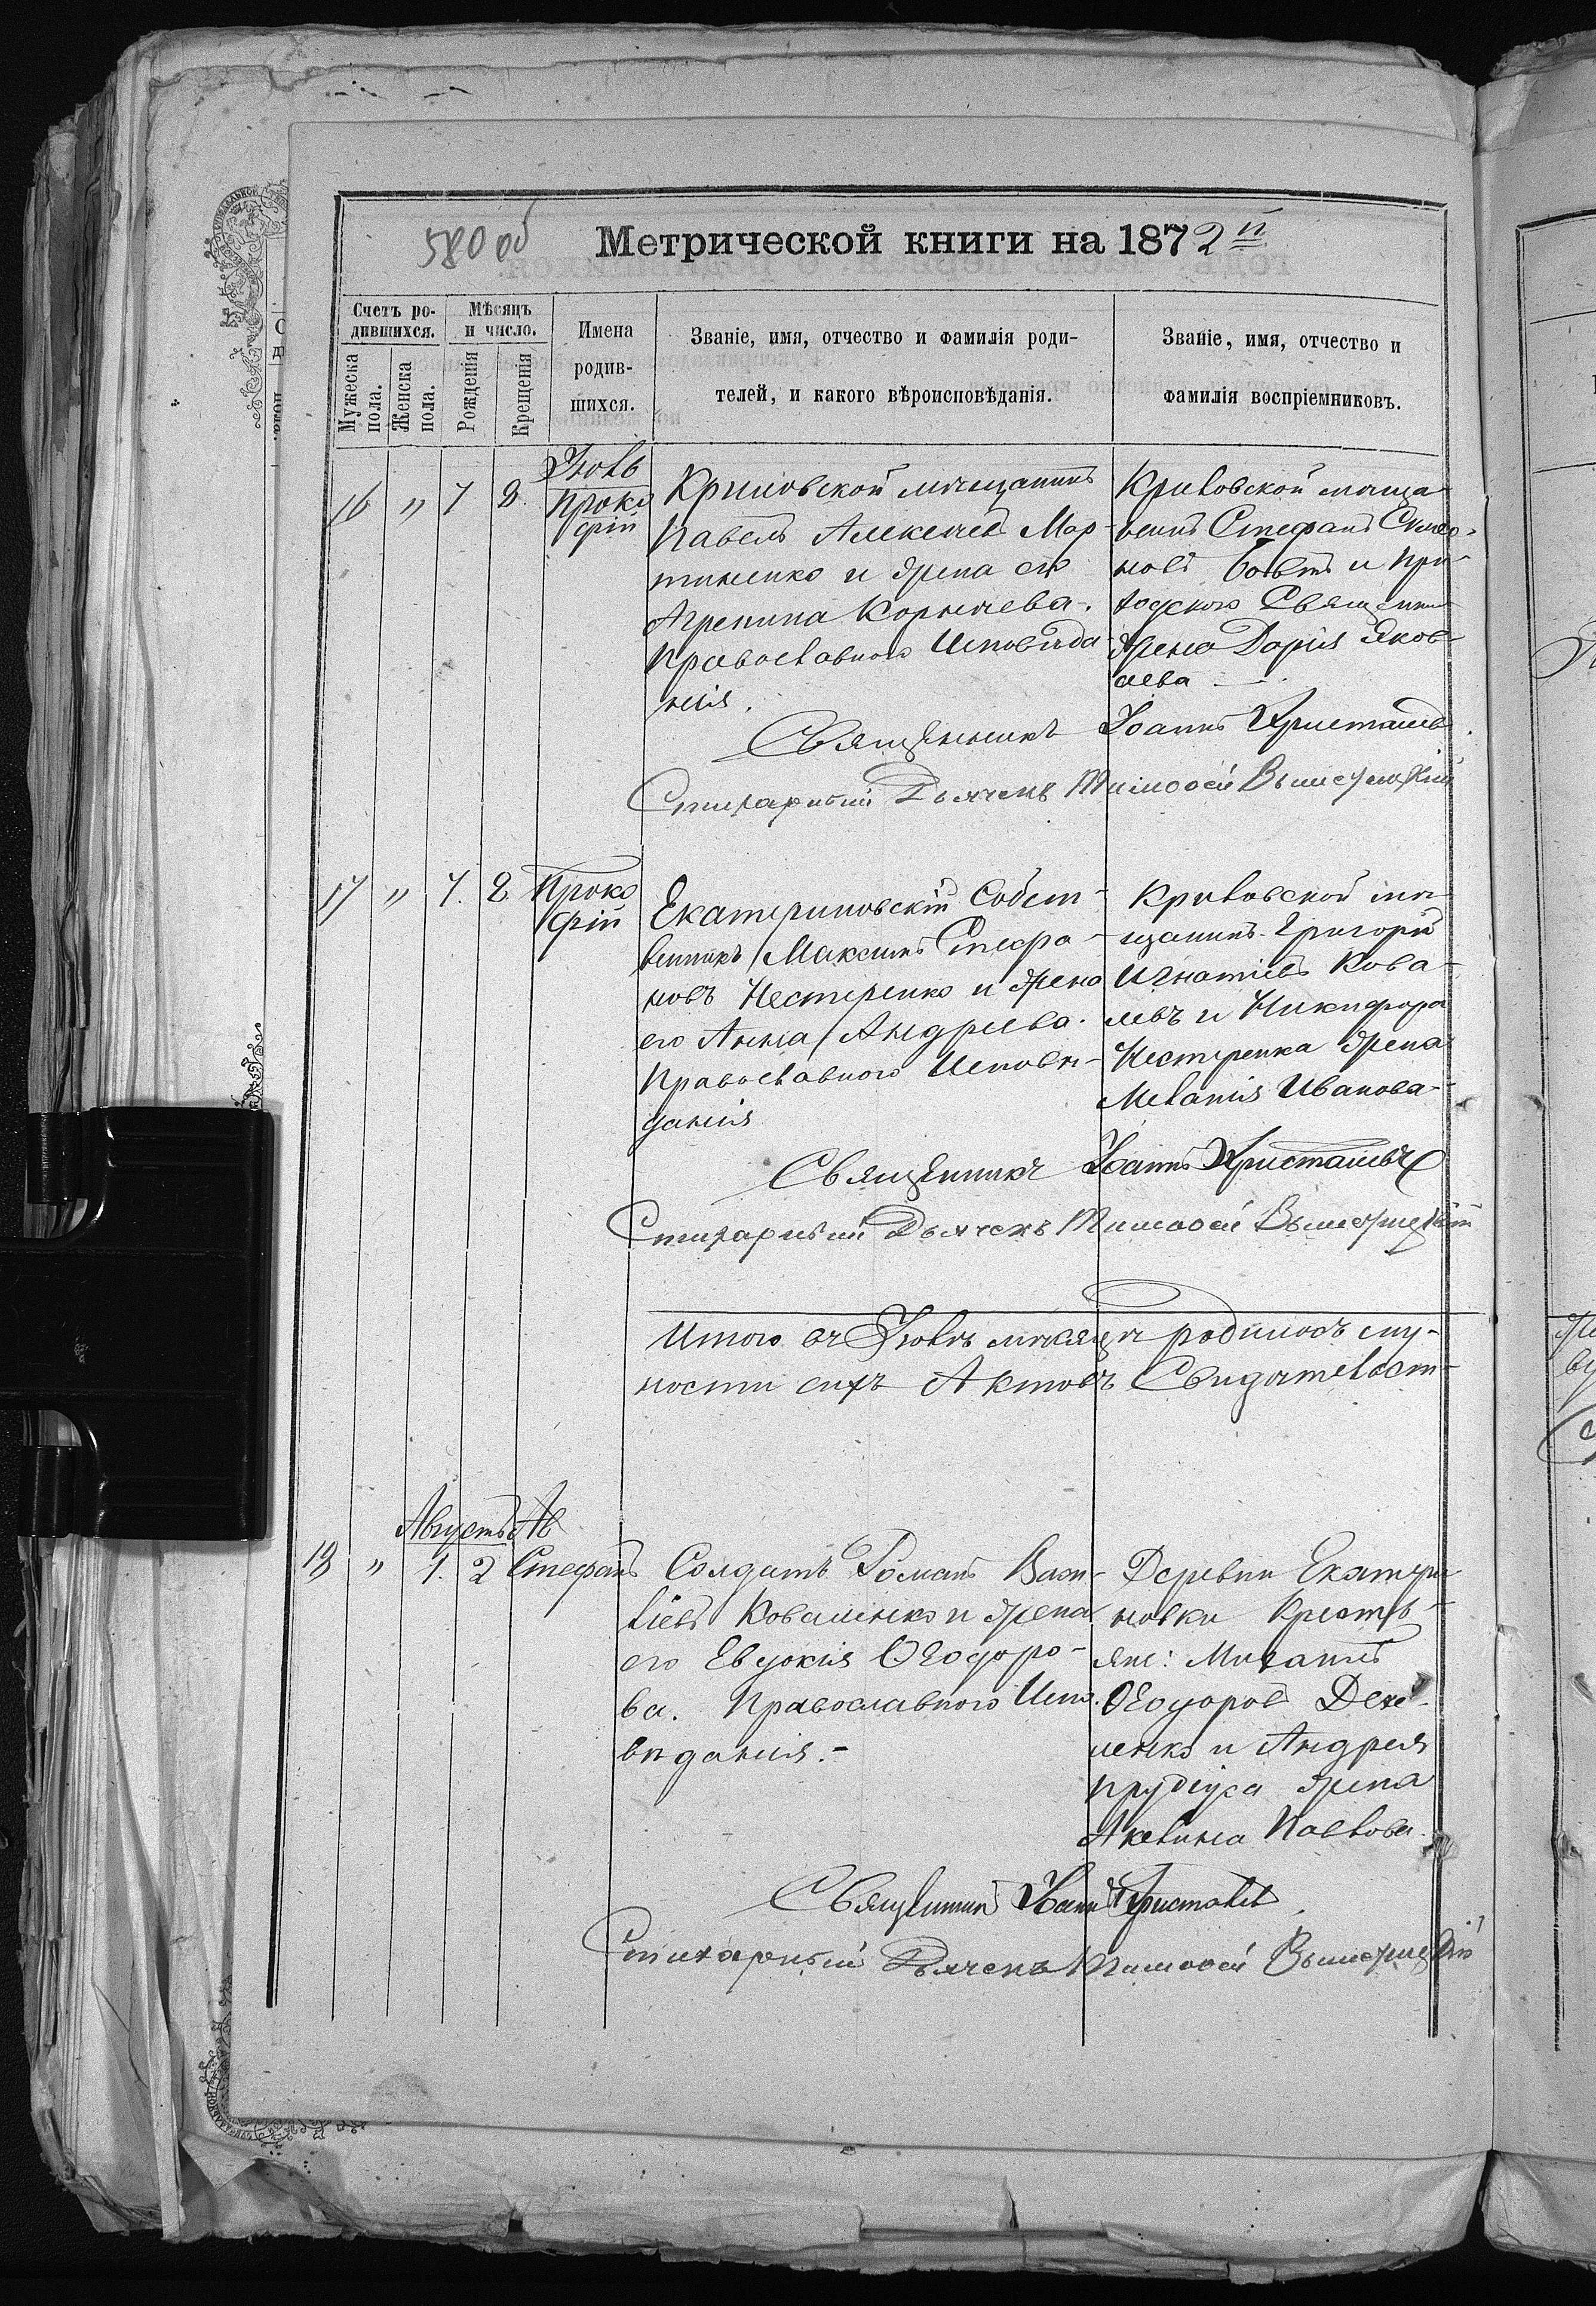 580 об
Метрической книги на 1872й
Счетъ ро-
дившихся.
Мѣсяцъ
и число.
Мужеска
пола.
Женска
пола.
Рожденія
Крещенія
Имена
родив-
шихся.
Званіе, имя, отчество и фамилія роди-
телей, и какого вѣроисповѣданія.
Званіе, имя, отчество и
фамилія воспріемниковъ.
Іюль
16 " 7 8. Проко
фій
мѣщанинъ
Павелъ Алексѣевъ Мар-
тыненко и жена его
Агрепина Корнѣева.
Православнаго Исповѣда-
нія.
Криловской мѣща-
нинъ Стефанъ Симео-
новъ и При-
ходскаго Священника
жена Дарія Яков-
лева
Священникъ Іоаннъ Христалевъ.
Стихарный Дьячекъ Тимоѳей
17 " 7. 8. Проко
фій
Екатериновскій Собст-
венникъ Максимъ Стефа-
новъ Нестеренко и жена
его Анна Андреева.
Православнаго Исповѣ-
данія
Криловской мѣ-
щанинъ Григорій
Игнатіевъ Кова-
левъ и Никифора
Нестеренка жена
Меланія Иванова
Священникъ Іоаннъ Христалевъ
Стихарный Дьячекъ Тимоѳей
Итого въ Іюлѣ мѣсяцѣ родилось
ности сихъ Актовъ Свидѣтельст-
Августъ Ав
18 " 1. 2 Стефанъ
Солдатъ Романъ Васи-
ліевъ Коваленко и жена
его Евдокія Ѳеодоро-
ва. Православнаго Испо-
вѣданія.-
Деревни Екатери-
новки Кресть-
яне: Михаилъ
Ѳеодоровъ
и Андрея
жена
Акелина Павлова.
Священникъ Іоаннъ Христалевъ
Стихарный Дьячекъ Тимоѳей